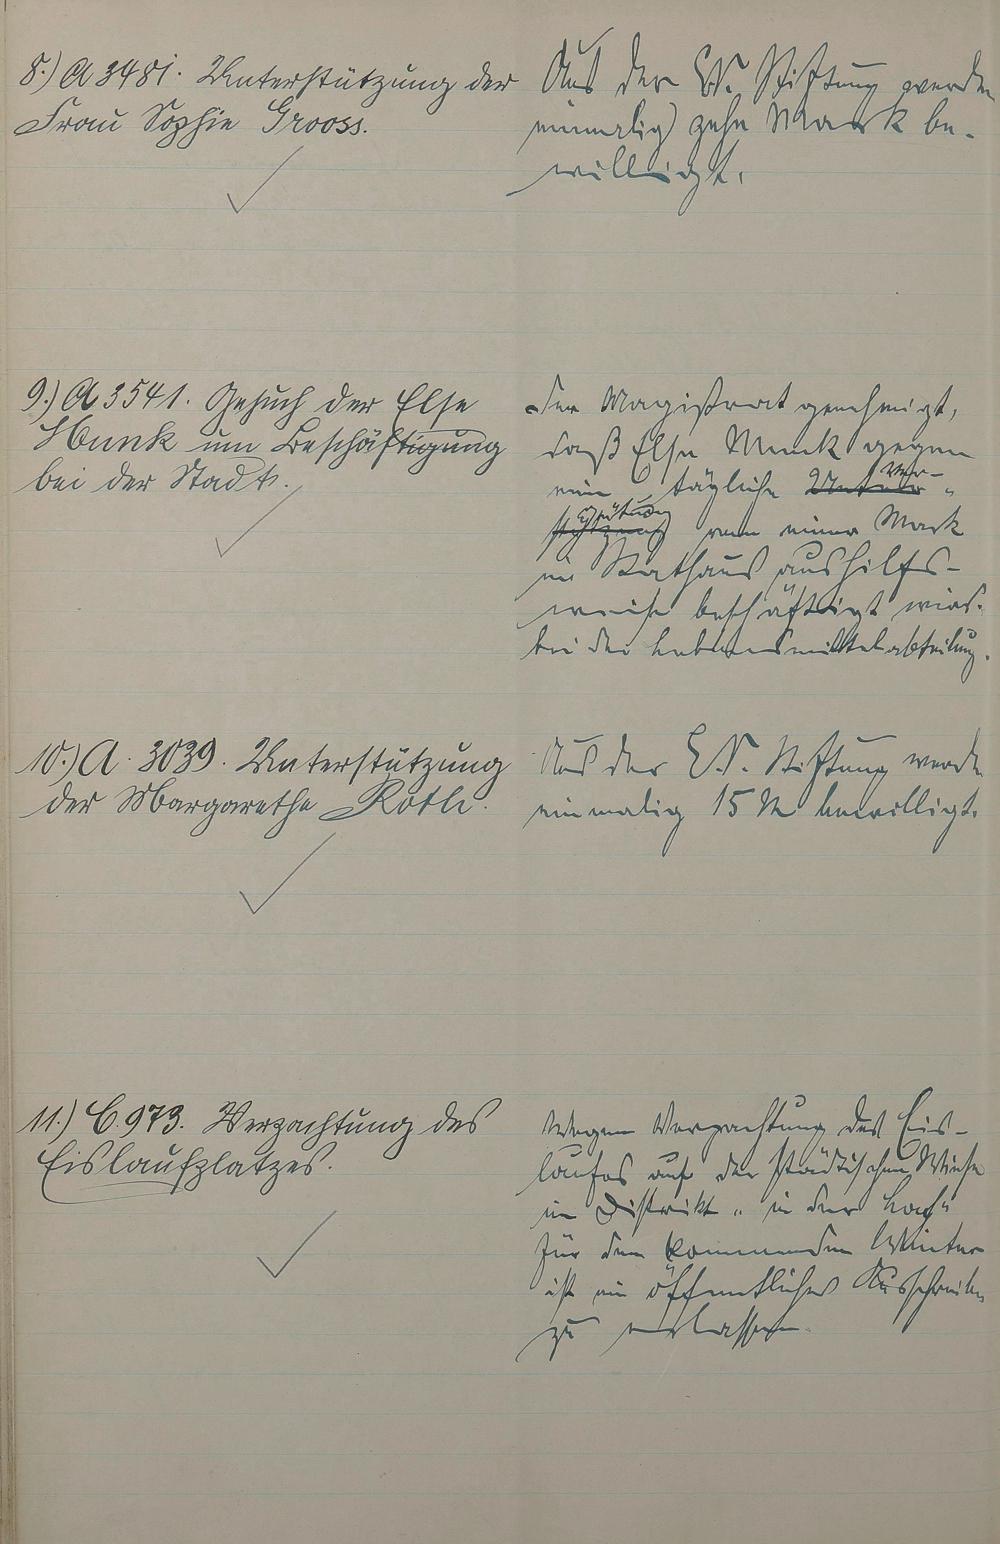 8.) A 3481. Unterstützung der
Frau Sophie Grooss.
Aus der EV. Stiftung werden
einmalig zehn Mark be-
willigt.
9.) A 3541. Gesuch der Else
Munk um Beschäftigung
bei der Stadt.
Der Magistrat genehmigt,
daß Else Munk gegen
eine tägliche Unter- Ver-
stützung gütung von einer Mark
im Rathaus aushilfs-
weise beschäftigt wird.
bei der Lebensmittelabteilung.
10.) A. 3039. Unterstützung
der Margarethe Roth.
Aus der EV. Stiftung werden
einmalig 15 M bewilligt.
11.) C. 973. Verpachtung des
Eislaufplatzes.
Wegen Verpachtung des Eis-
laufes auf der städtischen Wiese
im Distrikt „in der Lach"
für den kommenden Winter
ist ein öffentliches Ausschreiben
zu erlassen.